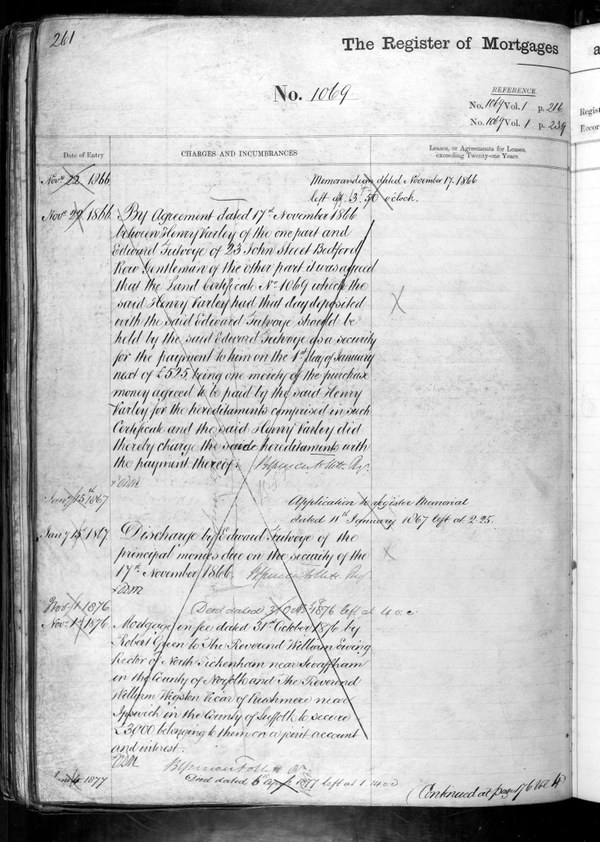 261
The Register of Mortgages a
No. 1069
REFERENCE
No. 1069 Vol. 1 p. 216
No. 1069 Vol. 1 p. 239
Regist
Recor
Date of Entry
CHARGES AND INCUMBRANCES
Leases, or Agreements for Leases,
exceeding Twenty-one Years
Novr 22 1866
Memorandum dated November 17. 1866
left at 3.50 o'clock.
Novr 29 1866
By Agreement dated 17th November 1866
between Henry Varley of the one part and
Edward Tulvoye of 23 John Street Bedford
Row Gentleman of the other part it was agreed
that the Land Certificate No 1069 which the
said Henry Varley had that day deposited
with the said Edward Tulvoye should be
held by the said Edward Tulvoye as a security
for the payment to him on the 1st day of January
next of £525 being one moiety of the purchase
money agreed to be paid by the said Henry
Varley for the hereditaments comprised in such
Certificate and the said Henry Varley did
thereby charge the said hereditaments with
the payment thereof.
Jany 15th 1867
Application to register Memorial
dated 11th January 1867 left at 2.25.
Jany 15 1867.
Discharge by Edward Tulvoye of the
principal monies due on the security of the
17th November 1866
Novr 1 1876
Deed dated 31 Octr 1876 left at 4 o c
Novr 1st 1876
Mortgage in fee dated 31st October 1876 by
Robert Green to The Reverend William Ewing
Rector of North Pickenham near Swaffham
in the County of Norfolk and The Reverend
William Wigston Vicar of Rushmere near
Ipswich in the County of Suffolk to secure
£3000 belonging to them on a joint account
and interest.
1877
Deed dated 6 April 1877 left at 1.
(Continued at page 176 Vol 4)